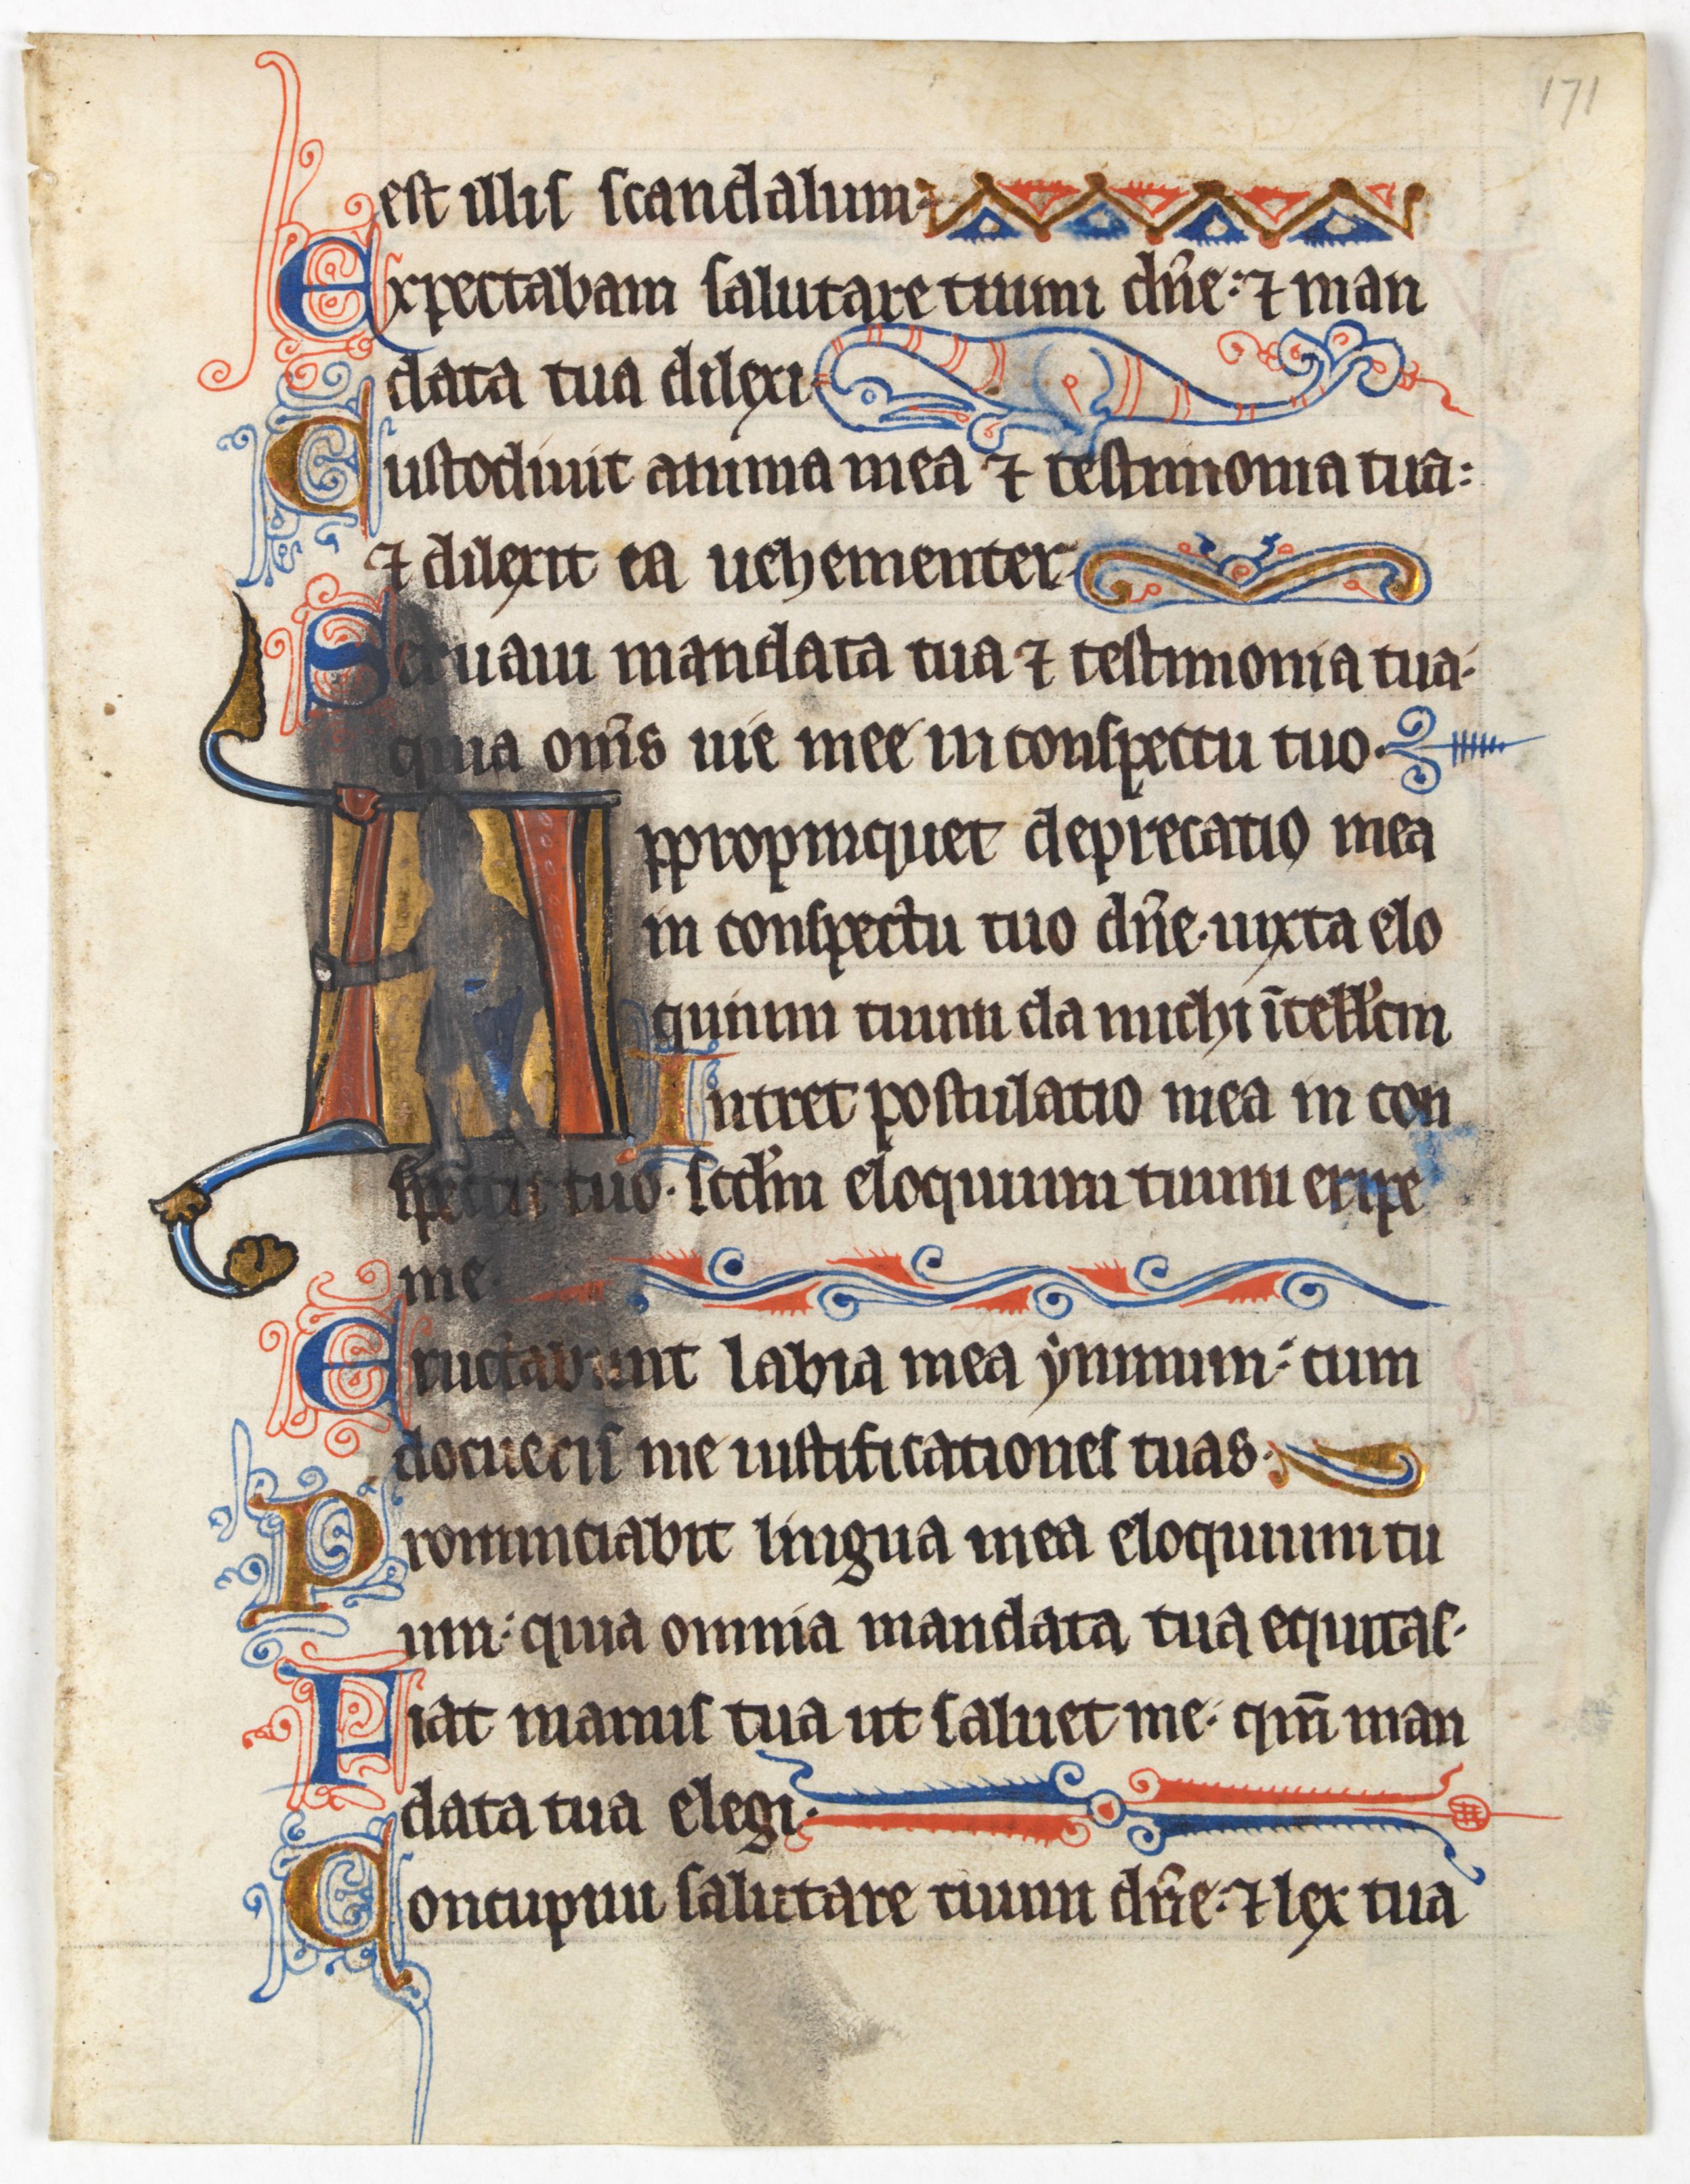 171
est illis scandalum
Expectabam salutare tuum dn̄e: ⁊ man
data tua dilexi
Custodiuit anima mea ⁊ testimonia tua:
⁊ dilexit ea uehementer
Seruaui mandata tua ⁊ testimonia tua.
quia om̄s uie mee in conspectu tuo.
Appropinquet deprecatio mea
in conspectu tuo dn̄e. iuxta elo
quium tuum da michi ītell'cm
Intret postulatio mea in con
spectu tuo. scd'm eloquium tuum eripe
me.
Eructabunt labia mea ẏmnum: cum
docueris me iustificationes tuas.
Pronunciabit lingua mea eloquium tu
um: quia omnia mandata tua equitas.
Fiat manus tua ut saluet me: qm̄ man
data tua elegi.
Concupiui salutare tuum dn̄e: ⁊ lex tua